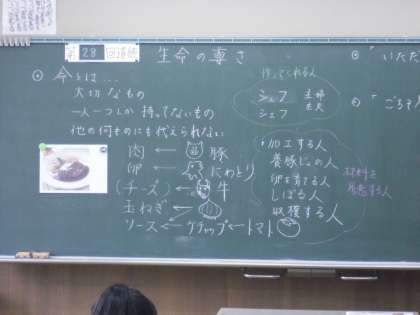 第28回道徳
生命の尊さ
命とは…
大切なもの
一人一つしか持ってないもの
他の何ものにも代えられない
肉 ← 豚
卵 ← にわとり
(チーズ) ← 牛
玉ねぎ ←
ソース ← ケチャップ ← トマト
作ってくれる人
シェフ 主婦
シェフ 主夫
・加工する人
養豚場の人
卵を育てる人
しぼる人
収穫する人
材料を用意する人
「いただ
「ごちそ